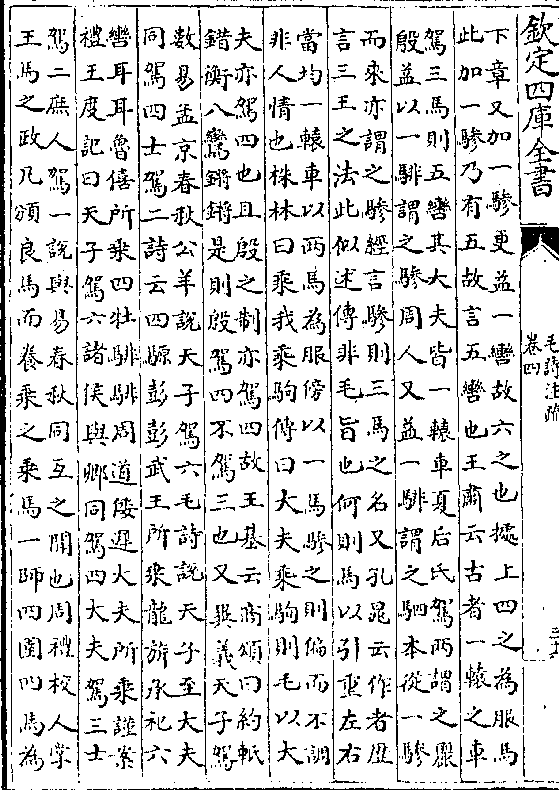 欽定四庫全書
毛詩注疏
卷四
下章又加一驂更益一轡故六之也據上四之為服馬
此加一驂乃有五故言五轡也王肅云古者一轅之車
駕三馬則五轡其大夫皆一轅車夏后氏駕兩謂之麗
殷益以一騑謂之驂周人又益一騑謂之駟本從一驂
而來亦謂之驂經言驂則三馬之名又孔晁云作者歷
言三王之法此似述傳非毛旨也何則馬以引重左右
當均一轅車以兩馬為服傍以一馬驂之則偏而不調
非人情也株林曰乘我乘駒傳曰大夫乘駒則毛以大
夫亦駕四也且殷之制亦駕四故王基云商頌曰約軝
錯衡八鸞鏘鏘是則殷駕四不駕三也又異義天子駕
數易孟京春秋公羊說天子駕六毛詩說天子至大夫
同駕四士駕二詩云四騵彭彭武王所乘龍旂承祀六
轡耳耳魯僖所乘四牡騑騑周道倭遲大夫所乘謹案
禮王度記曰天子駕六諸侯與卿同駕四大夫駕三士
駕二庶人駕一說與易春秋同互之聞也周禮校人掌
王馬之政凡頒良馬而養乘之乘馬一師四圉四馬為